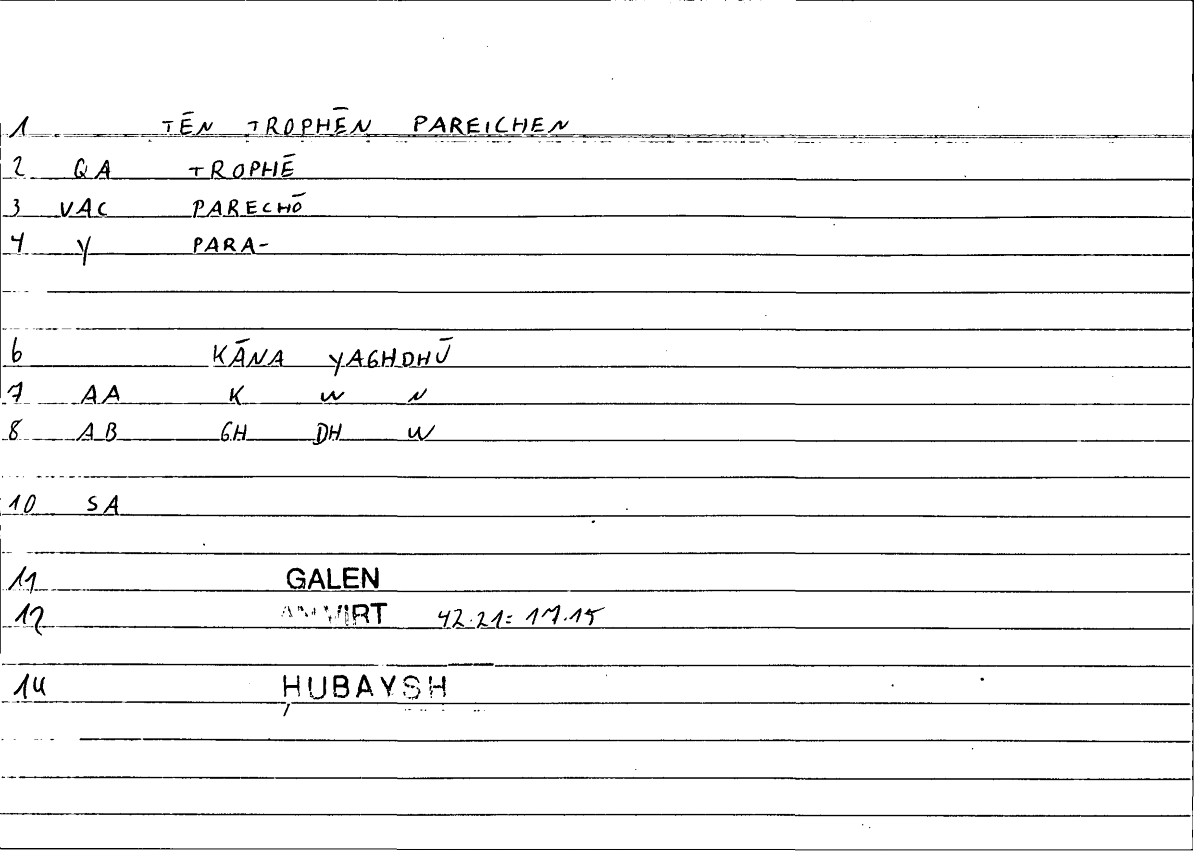 1 TĒN TROPHĒN PAREICHEN
2 QA TROPHĒ
3 VAC PARECHŌ
4 Y PARA-
6 KĀNA YAGHDHŪ
7 AA K W N
8 AB GH DH W
10 SA
11 GALEN
12 AN VIRT 42.21= 17.15
14 ḤUBAYSH